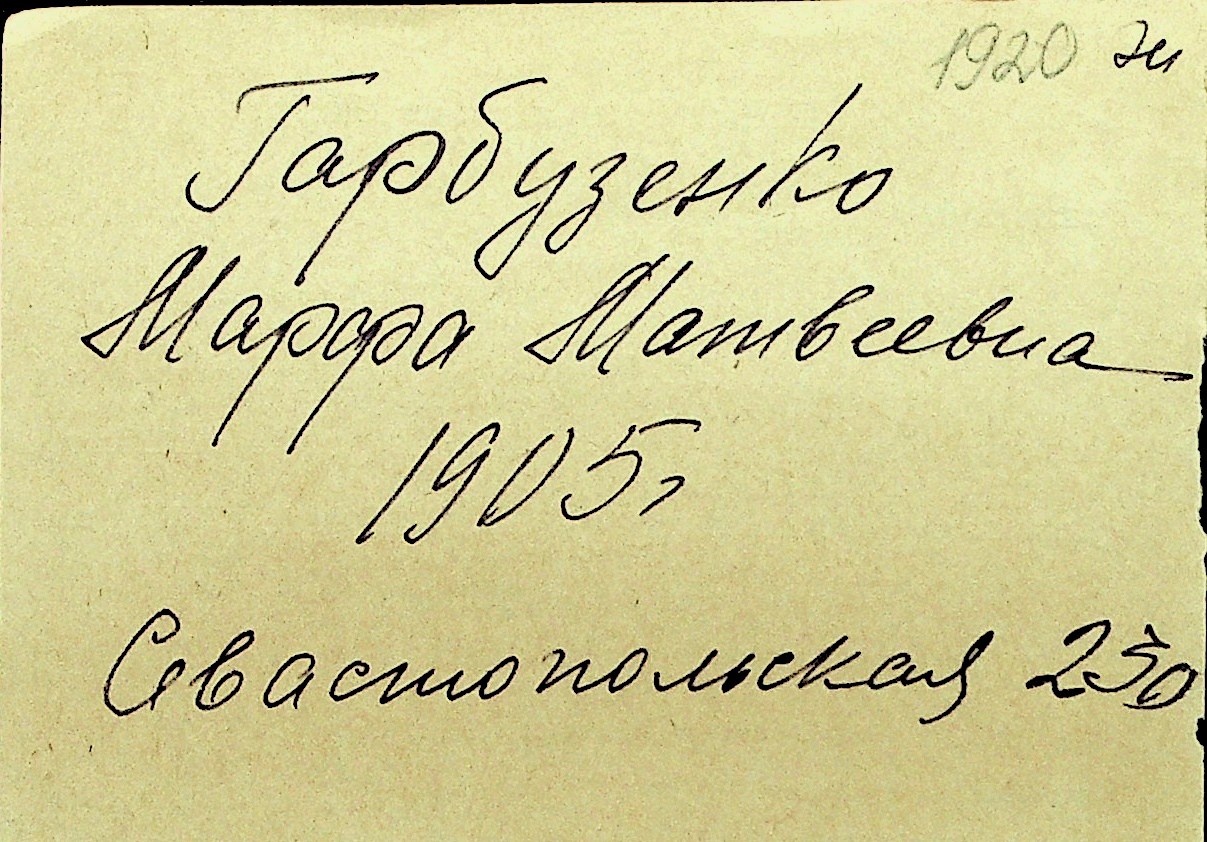 1920
Гарбузенко
Марфа Матвеевна
1905г
Севастопольская 250